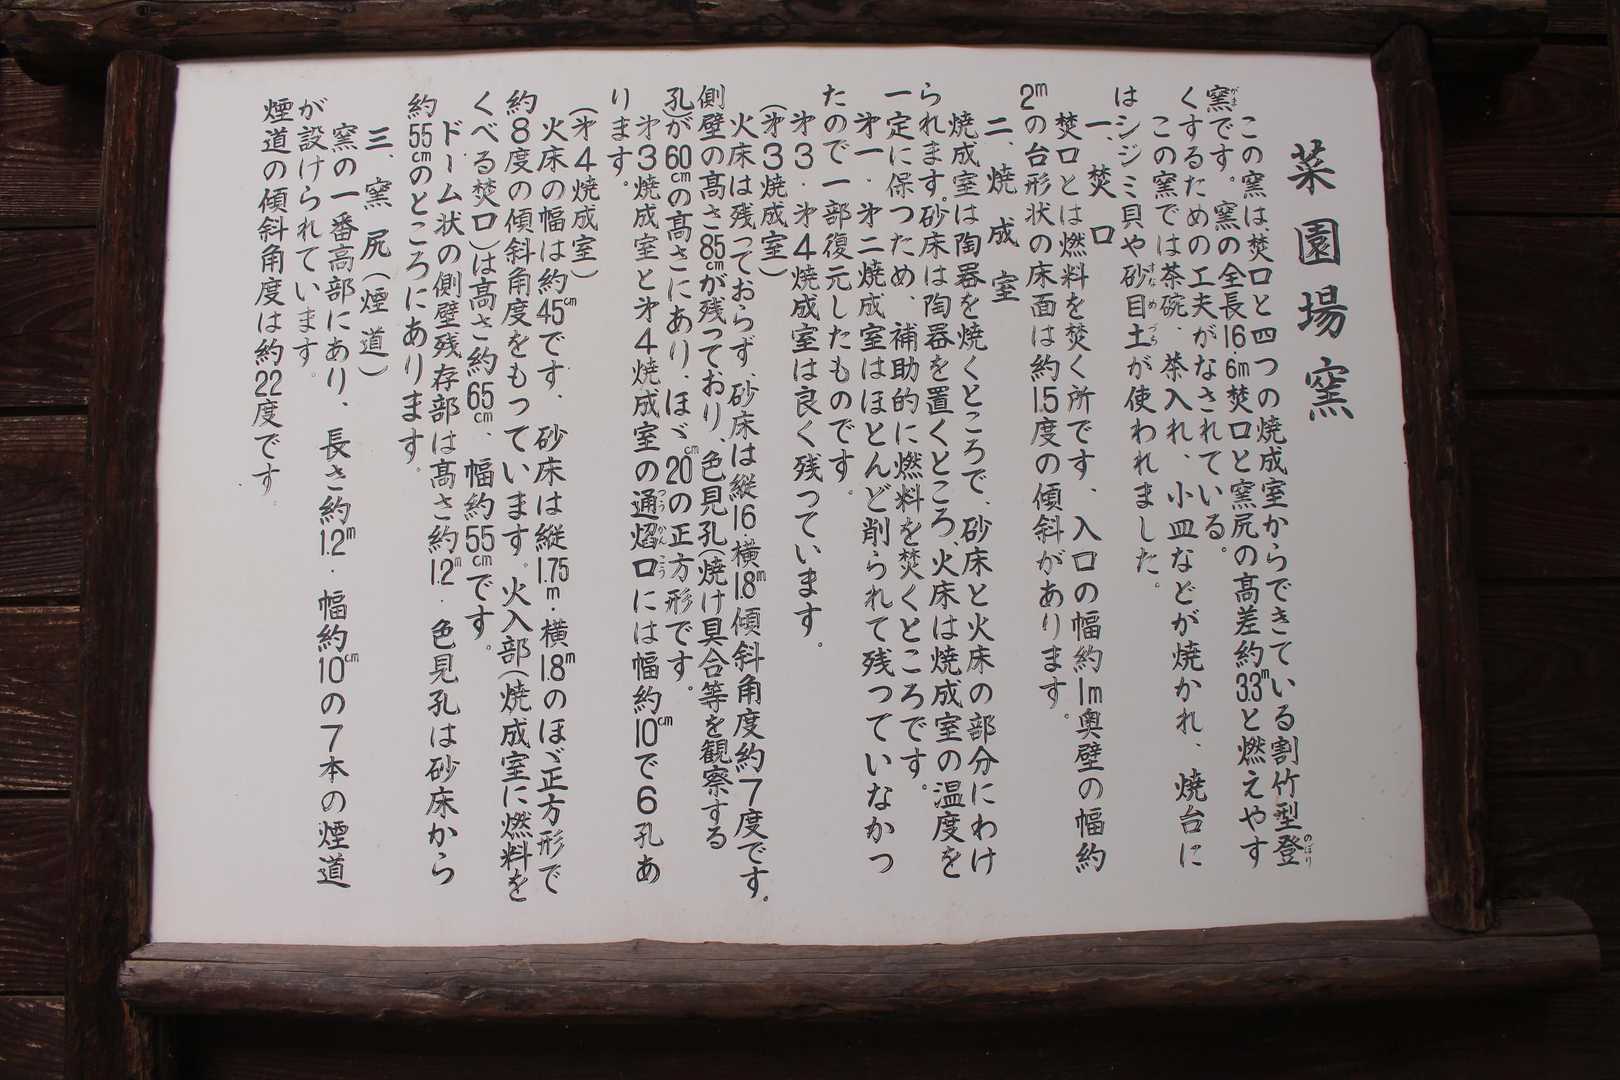 菜園場窯
この窯は、焚口と四つの焼成室からできている割竹型登
窯です。窯の全長16.6m焚口と窯尻の高差約3.3mと燃えやす
くするための工夫がなされている。
この窯では茶碗、茶入れ、小皿などが焼かれ、焼台に
はシジミ貝や砂目土が使われました。
一、焚口
焚口とは燃料を焚く所です、入口の幅約1m奥壁の幅約
2mの台形状の床面は約15度の傾斜があります。
二、焼成室
焼成室は陶器を焼くところで、砂床と火床の部分にわけ
られます。砂床は陶器を置くところ、火床は焼成室の温度を
一定に保つため、補助的に燃料を焚くところです。
㐧一・㐧二焼成室はほとんど削られて残っていなかっ
たので一部復元したものです。
㐧3・㐧4焼成室は良く残っています。
(㐧3焼成室)
火床は残っておらず、砂床は縦1.6・横1.8m傾斜角度約7度です。
側壁の高さ85㎝が残っており、色見孔(焼け具合等を観察する
孔)が60㎝の高さにあり、ほゞ20㎝の正方形です。
㐧3焼成室と㐧4焼成室の通焰口には幅約10㎝で6孔あ
ります。
(㐧4焼成室)
火床の幅は約45㎝です、砂床は縦1.75m・横1.8mのほゞ正方形で
約8度の傾斜角度をもっています。火入部(焼成室に燃料を
くべる焚口)は高さ約65㎝、幅約55㎝です。
ドーム状の側壁残存部は高さ約1.2m・色見孔は砂床から
約55㎝のところにあります。
三、窯尻(煙道)
窯の一番高部にあり、長さ約1.2m・幅約10㎝の7本の煙道
が設けられています。
煙道の傾斜角度は約22度です。